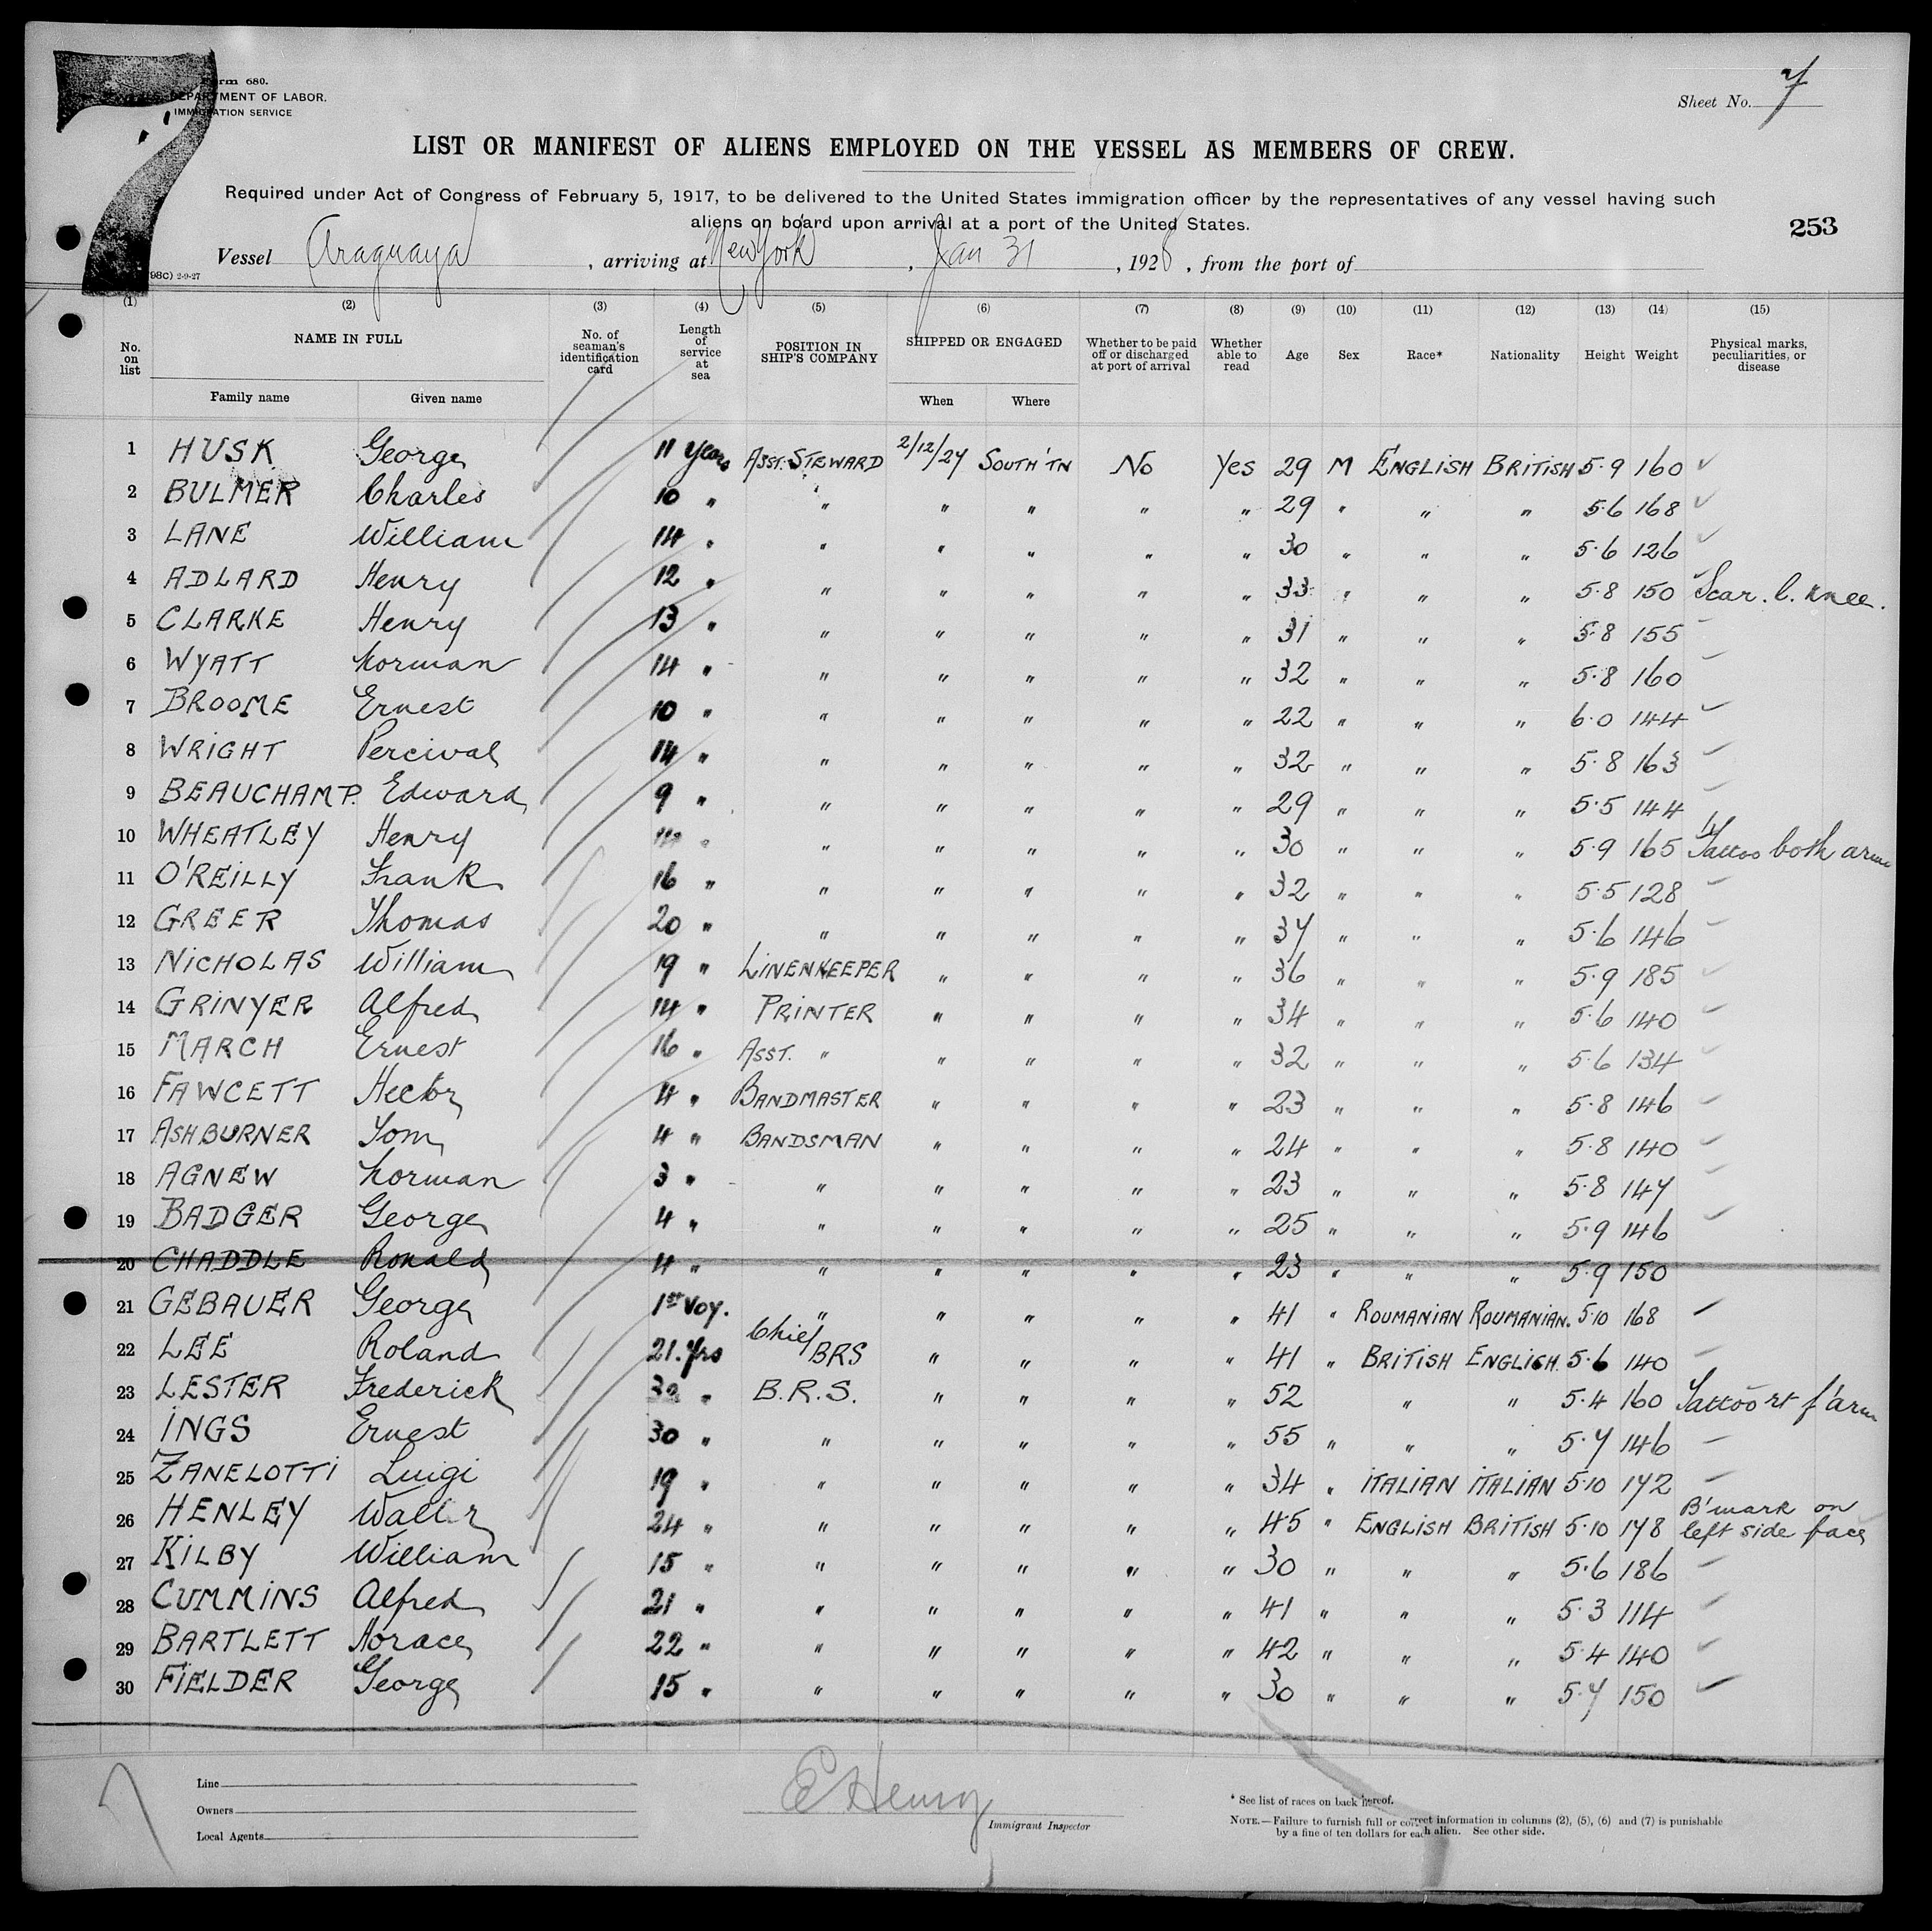 7
Form 680.
DEPARTMENT OF LABOR.
IMMIGRATION SERVICE
Sheet No. 7
LIST OR MANIFEST OF ALIENS EMPLOYED ON THE VESSEL AS MEMBERS OF CREW.
Required under Act of Congress of February 5, 1917, to be delivered to the United States immigration officer by the representatives of any vessel having such
aliens on board upon arrival at a port of the United States.
253
Vessel Araguaya, arriving at New York, Jan 31, 1928, from the port of
98C) 2-9-27
(1) (2) (3) (4) (5) (6) (7) (8) (9) (10) (11) (12) (13) (14) (15)
No. on list NAME IN FULL No. of seaman's identification card Length of service at sea POSITION IN SHIP'S COMPANY SHIPPED OR ENGAGED Whether to be paid off or discharged at port of arrival Whether able to read Age Sex Race* Nationality Height Weight Physical marks, peculiarities, or disease
Family name Given name When Where
1 HUSK George 11 years ASST. STEWARD 2/12/27 SOUTH'TN No Yes 29 M ENGLISH BRITISH 5·9 160 ✓
2 BULMER Charles 10 " " " " " " 29 " " " 5·6 168 ✓
3 LANE William 14 " " " " " " 30 " " " 5·6 126 ✓
4 ADLARD Henry 12 " " " " " " 33 " " " 5·8 150 Scar. l. knee.
5 CLARKE Henry 13 " " " " " " 31 " " " 5·8 155
6 WYATT Norman 14 " " " " " " 32 " " " 5·8 160
7 BROOME Ernest 10 " " " " " " 22 " " " 6·0 144 ✓
8 WRIGHT Percival 14 " " " " " " 32 " " " 5·8 163 ✓
9 BEAUCHAMP. Edward 9 " " " " " " 29 " " " 5·5 144
10 WHEATLEY Henry 14 " " " " " " 30 " " " 5·9 165 Tattoo both arms
11 O'REILLY Frank 16 " " " " " " 32 " " " 5·5 128
12 GREER Thomas 20 " " " " " " 37 " " " 5·6 146
13 NICHOLAS William 19 " LINENKEEPER " " " " 36 " " " 5·9 185 ✓
14 GRINYER Alfred 14 " PRINTER " " " " 34 " " " 5·6 140 ✓
15 MARCH Ernest 16 " ASST. " " " " " 32 " " " 5·6 134 ✓
16 FAWCETT Hector 4 " BANDMASTER " " " " 23 " " " 5·8 146 ✓
17 ASHBURNER Tom 4 " BANDSMAN " " " " 24 " " " 5·8 140 ✓
18 AGNEW Norman 3 " " " " " " 23 " " " 5·8 147
19 BADGER George 4 " " " " " " 25 " " " 5·9 146 ✓
20 CHADDLE Ronald 4 " " " " " " 23 " " " 5·9 150
21 GEBAUER George 1st voy. " " " " " 41 " ROUMANIAN ROUMANIAN. 5·10 168
22 LEE Roland 21. yrs Chief BRS " " " " 41 " BRITISH ENGLISH. 5·6 140
23 LESTER Frederick " B.R.S. " " " " 52 " " 5·4 160 Tattoo rt f'arm
24 INGS Ernest 30 " " " " " " 55 " " " 5·7 146
25 ZANELOTTI Luigi 19 " " " " " " 34 " ITALIAN ITALIAN 5·10 172
26 HENLEY Walter 24 " " " " " " 45 " ENGLISH BRITISH 5·10 178 B'mark on left side face
27 KILBY William 15 " " " " " " 30 " " " 5·6 186
28 CUMMINS Alfred 21 " " " " " " 41 " " " 5·3 114 ✓
29 BARTLETT Horace 22 " " " " " " 42 " " " 5·4 140 ✓
30 FIELDER George 15 " " " " " " 30 " " " 5·7 150 ✓
Line
Owners
Local Agents
E Henry
Immigrant Inspector
* See list of races on back hereof.
NOTE.—Failure to furnish full or correct information in columns (2), (5), (6) and (7) is punishable
by a fine of ten dollars for each alien. See other side.